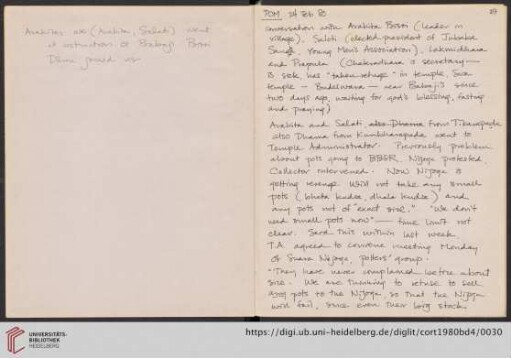 Arakita and (Arakita, Salati) went
at instruction of Babaji Bisoi
Dama joined us
TOM 24 Feb 80
Conversation with Arakita Bisoi (leader in
village), Saloti (elected president of Jubaka
Sangh, Young Men's Association), Lakmidhara
and (Chakradhara is secretary —
is sick, has "taken refuge" in temple, Siva
temple — — near Babaji's since
two days ago, waiting for god's blessing, fasting
and praying)
Arakita and Salati, also Dhama from
also Dhama from Kumbharapada went to
Temple Administrator. Previously problem
about pots going to Nijoga protested
Collector intervened. Now Nijoga is
getting revenge. Will not take any small
pots (bhata kudua, dhala kudua) and
any pots not of "exact size." "We don't
need small pots now" — time limit not
clear. Said this within last week.
T.A. agreed to convene meeting Monday
of Suara Nijoga, potters' group.
"They have never complained before about
size. We are thinking to refuse to sell
any pots to the Nijoga, so that the Nijoga
will fail, since even their long stock
UNIVERSITÄTS-
BIBLIOTHEK
HEIDELBERG
https://digi.ub.uni-heidelberg.de/diglit/cort1980bd4/0030